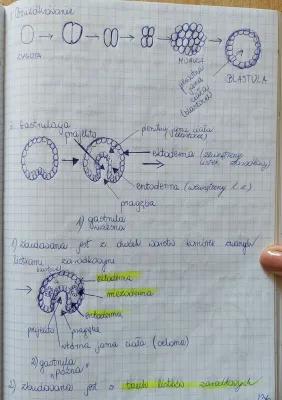 1. Bruzdkowanie
ZYGOTA
MORULA
BLASTULA
pierwotna
jama
ciała
(blastocel)
2. Gastrulacja
prajelito
pierwotna jama ciała
(blastocel)
ektoderma (zewnętrzny
listek zarodkowy)
entoderma (wewnętrzny l. z.)
pragęba
1) gastrula
wczesna
1) zbudowana jest z dwóch warstw komórek zwanych
listkami zarodkowymi
ektoderma
mezoderma
entoderma
prajelito
pragęba
wtórna jama ciała (celoma)
2) gastrula
"późna"
2) zbudowana jest z trzech listków zarodkowych